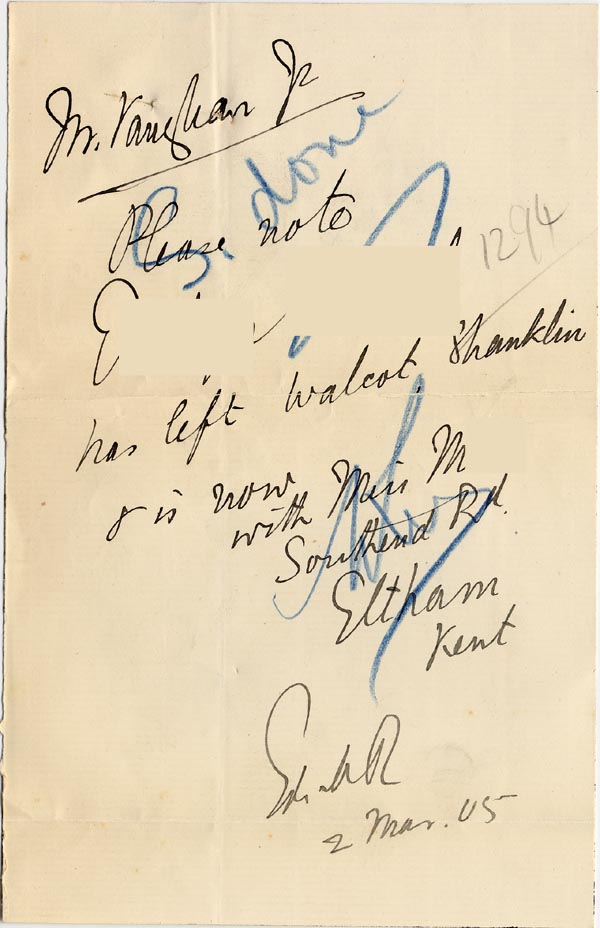 Mr. Vaughan Jr
done
Please note
1294
E
has left Walcot, Shanklin
& is now
with Miss M
Southend Rd.
Eltham
Kent
2 Mar. 05